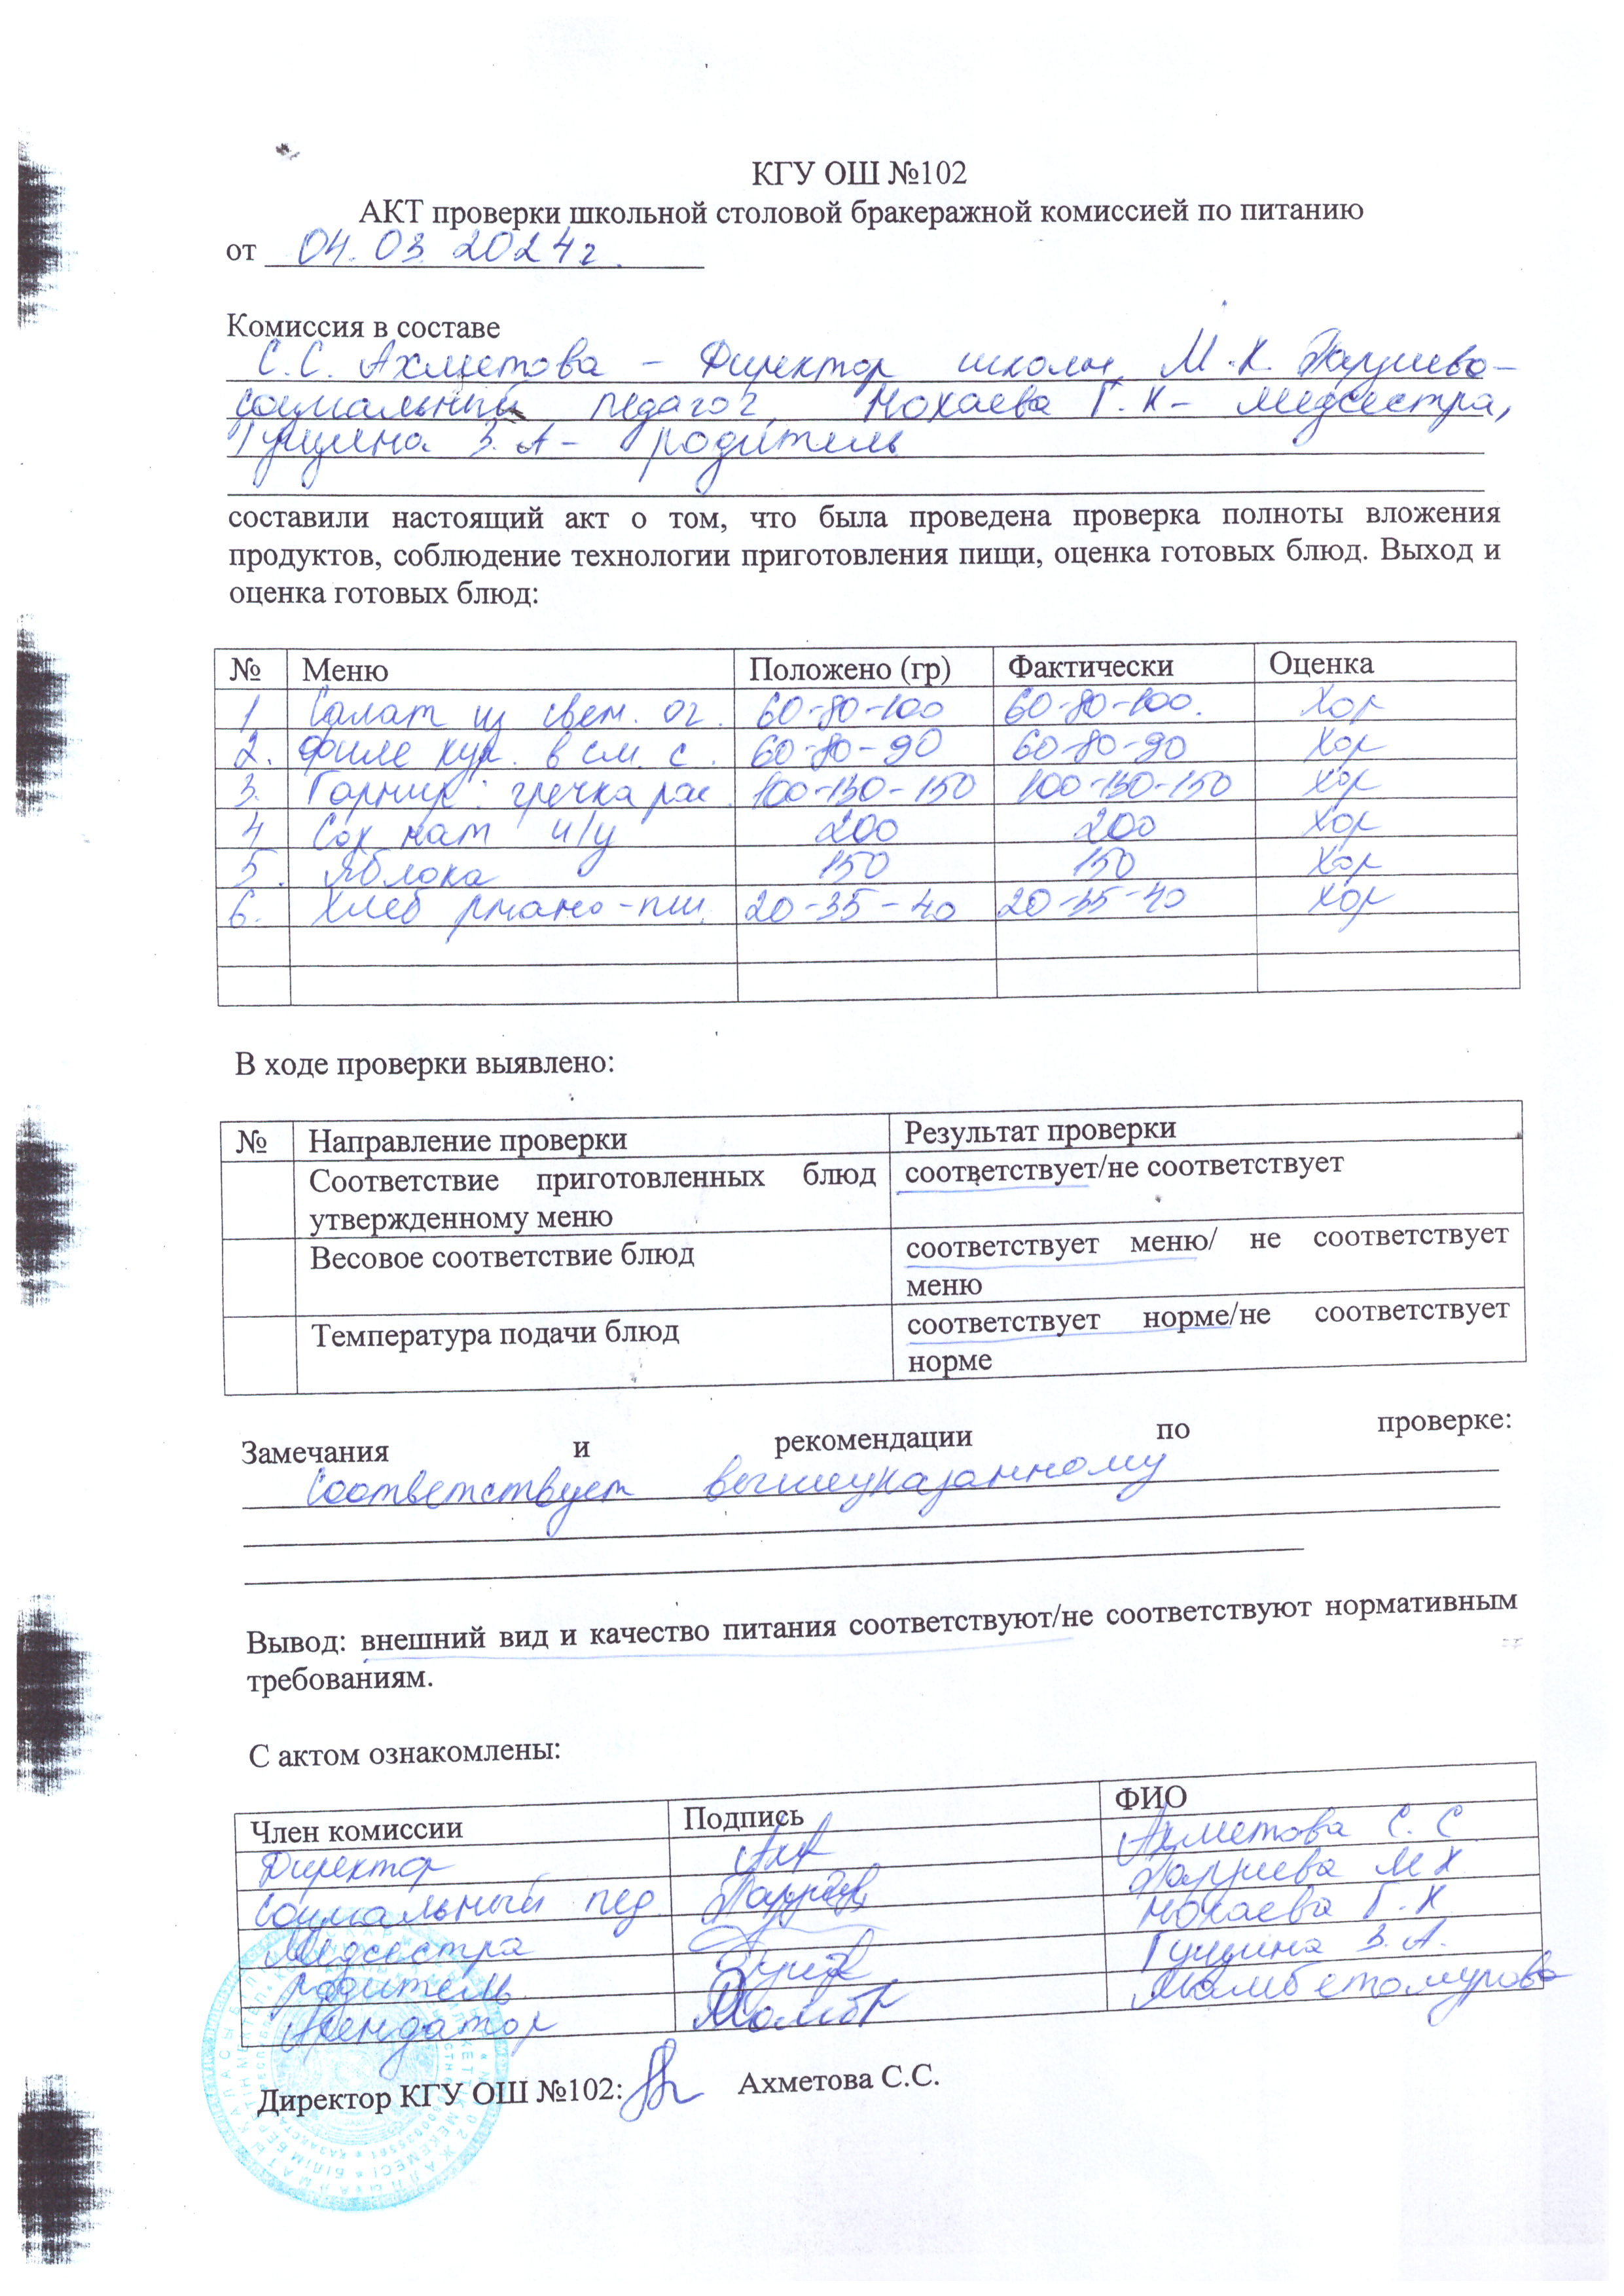 КГУ ОШ №102
АКТ проверки школьной столовой бракеражной комиссией по питанию
от 04.03.2024г.
Комиссия в составе
С.С. Ахметова – Директор школы, М.К.
социальный педагог, Нокаева Г.К – медсестра,
Гущина З.А – родитель
составили настоящий акт о том, что была проведена проверка полноты вложения
продуктов, соблюдение технологии приготовления пищи, оценка готовых блюд. Выход и
оценка готовых блюд:
№ Меню Положено (гр) Фактически Оценка
1 Салат из свеж. ог. 60-80-100 60-80-100. Хор
2. Филе кур. в см. с. 60-80-90 60-80-90 Хор
3. Гарнир: гречка рас. 100-130-150 100-130-150 Хор
4 Сок нат 200 200 Хор
5. Яблока 150 150 Хор
6. Хлеб ржано-пш. 20-35-40 20-35-40 Хор
В ходе проверки выявлено:
№ Направление проверки Результат проверки
Соответствие приготовленных блюд соответствует/не соответствует
утвержденному меню
Весовое соответствие блюд соответствует меню/ не соответствует
меню
Температура подачи блюд соответствует норме/не соответствует
норме
Замечания и рекомендации по проверке:
Соответствует вышеуказанному
Вывод: внешний вид и качество питания соответствуют/не соответствуют нормативным
требованиям.
С актом ознакомлены:
Член комиссии Подпись ФИО
Директор Ахметова С.С
Социальный пед. М К
Медсестра Нокаева Г.К
родитель Гущина З.А.
Арендатор Мамбетомурова
Директор КГУ ОШ №102: Ахметова С.С.